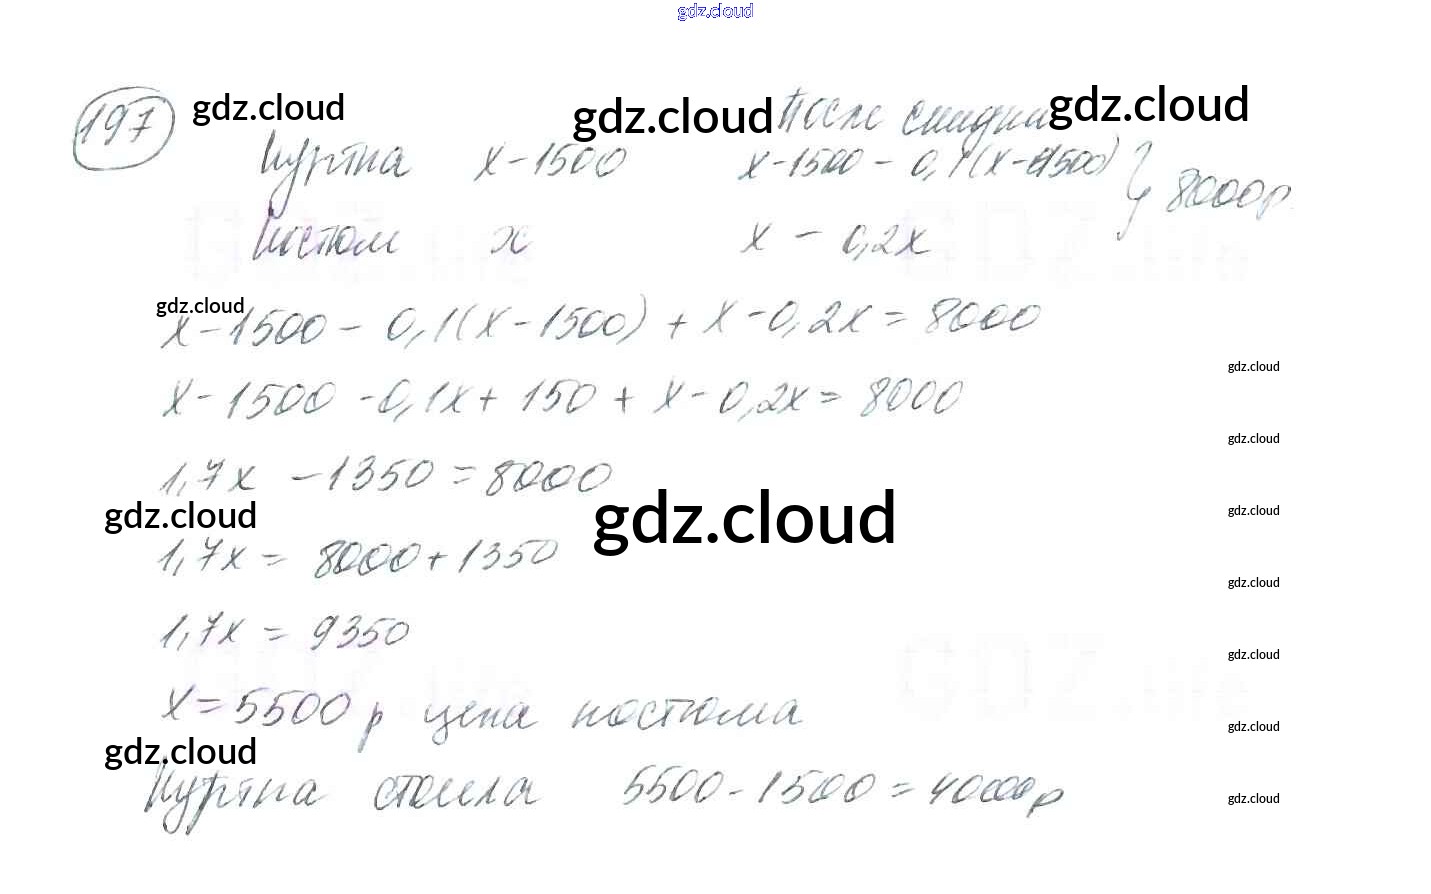 gdz.cloud
197 gdz.cloud gdz.cloud После скидки gdz.cloud
Куртка x - 1500 x - 1500 - 0,1(x - 1500) } 8000р.
Костюм x x - 0,2x
gdz.cloud
x - 1500 - 0,1(x - 1500) + x - 0,2x = 8000
gdz.cloud
x - 1500 - 0,1x + 150 + x - 0,2x = 8000
gdz.cloud
1,7x - 1350 = 8000
gdz.cloud gdz.cloud gdz.cloud
1,7x = 8000 + 1350
gdz.cloud
1,7x = 9350
gdz.cloud
x = 5500 р цена костюма
gdz.cloud
gdz.cloud
Куртка стоила 5500 - 1500 = 4000р
gdz.cloud